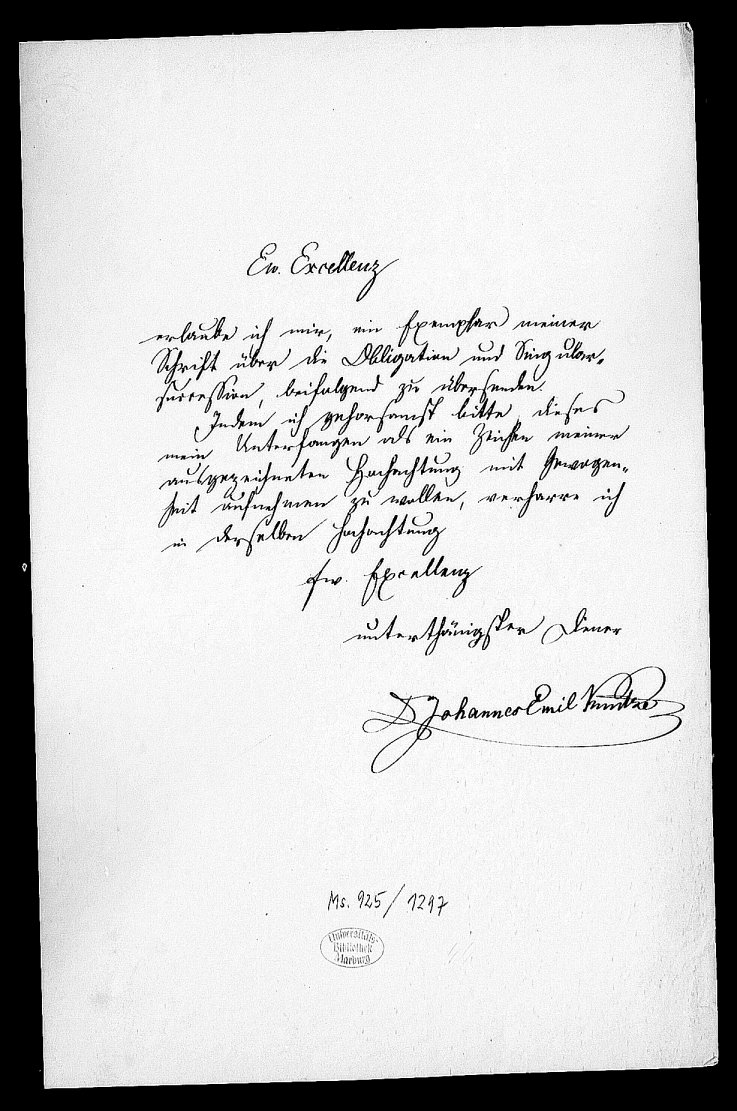 Ew. Excellenz
erlaube ich mir, ein Exemplar meiner
Schrift über die Obligation und Singular-
succession, beifolgend zu übersenden.
Indem ich gehorsamst bitte, dieses
mein Unterfangen als ein Zeichen meiner
ausgezeichneten Hochachtung mit Gewogen-
heit aufnehmen zu wollen, verharre ich
in derselben Hochachtung
Ew. Excellenz
unterthänigster Diener
D Johannes Emil Kuntze
Ms. 925/1297
Universitäts-
Bibliothek
Marburg